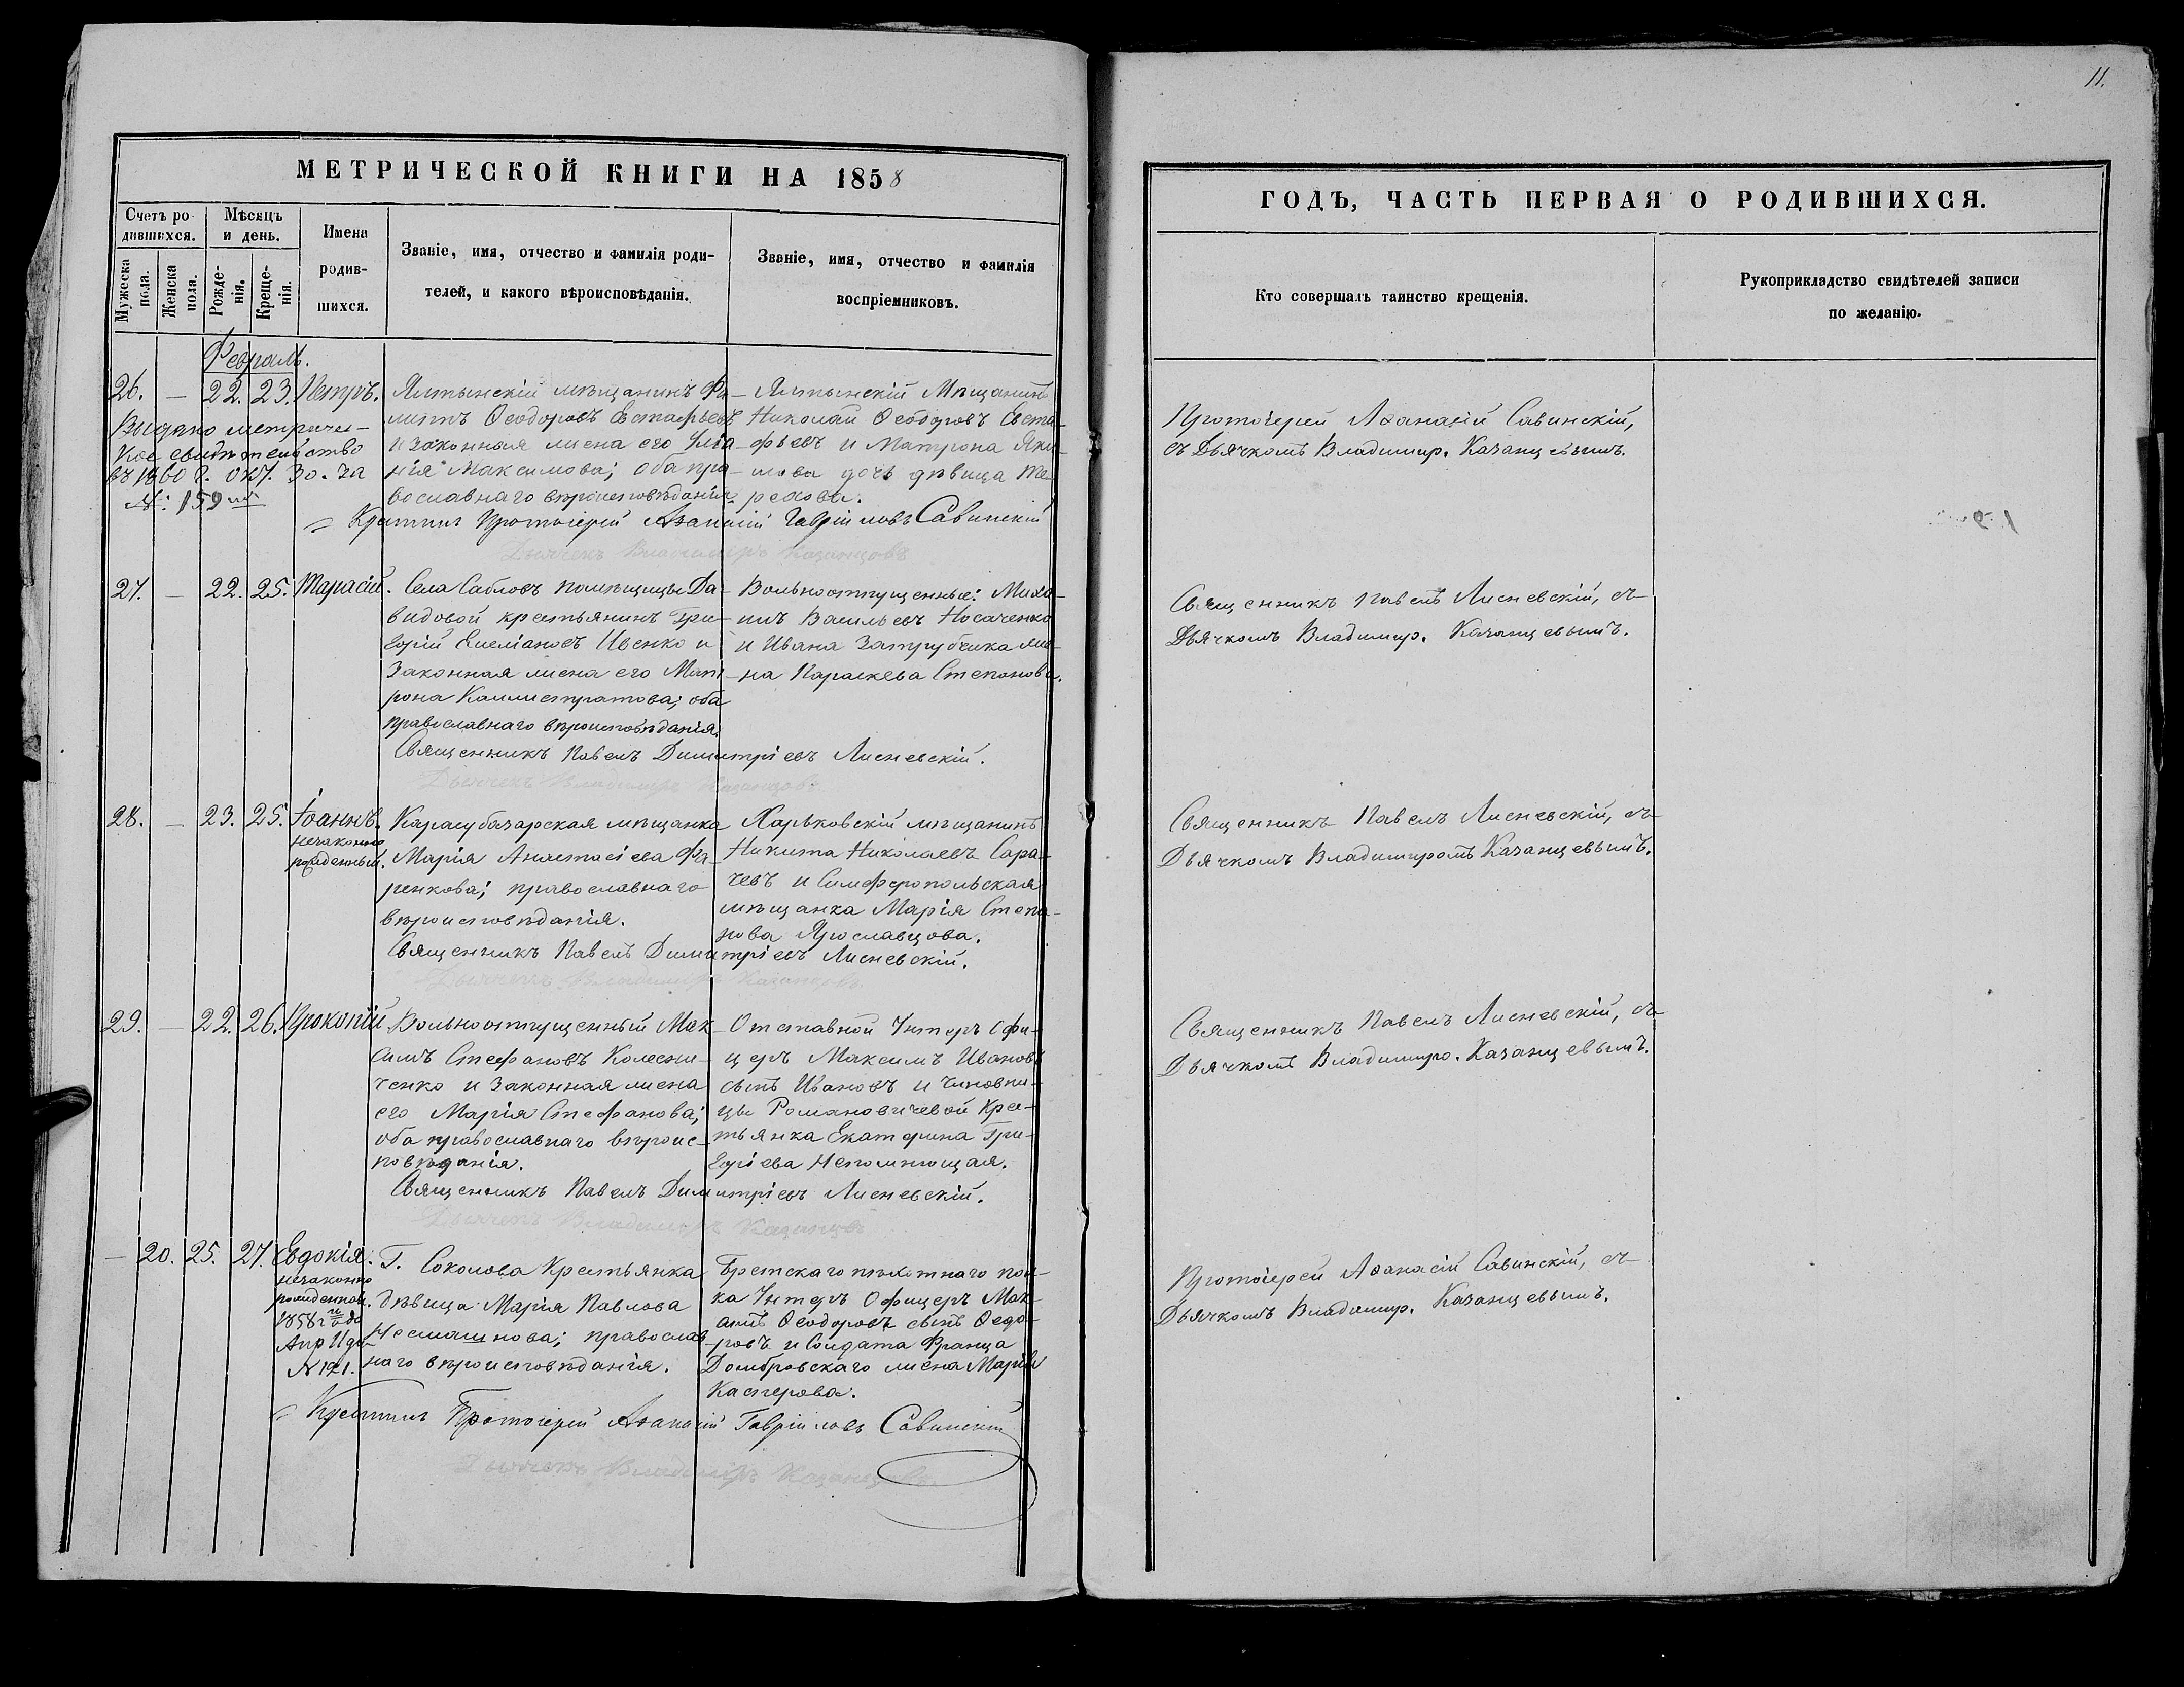 11.
МЕТРИЧЕСКОЙ КНИГИ НА 1858
ГОДЪ, ЧАСТЬ ПЕРВАЯ О РОДИВШИХСЯ.
Счетъ ро-
дившихся.
Мужеска
пола.
Женска
пола.
Мѣсяцъ
и день.
Рожде-
нія.
Креще-
нія.
Имена
родив-
шихся.
Званіе, имя, отчество и фамилія роди-
телей, и какого вѣроисповѣданія.
Званіе, имя, отчество и фамилія
воспріемниковъ.
Кто совершалъ таинство крещенія.
Рукоприкладство свидѣтелей записи
по желанію.
Февраль.
26. — 22. 23. Петръ.
Выдано метричес-
кое свидѣтельство
въ 1860 г. окт. 30. за
№: 159
Ялтынскій мѣщанинъ Фи-
липъ Ѳеодоровъ Евстафьевъ
и законная жена его Улiа-
нія Максимова; оба пра-
вославнаго вѣроисповѣданія.
Ялтынскій Мѣщанинъ
Николай Ѳеодоровъ Евста-
фьевъ и Матрона Яки-
мова дочь дѣвица Те-
рехова.
Крестилъ Протоіерей Аѳанасій Гавріиловъ Савинскій
Дьячекъ Владимиръ Казанцовъ
Протоіерей Аѳанасій Савинскій,
съ Дьячкомъ Владимир. Казанцевымъ.
27. — 22. 25. Тарасій.
Села Сабловъ помѣщицы Да-
видовой крестьянинъ Гри-
горій Емеліановъ Ивенко и
законная жена его Мат-
рона Каллистратова; оба
православнаго вѣроисповѣданія.
Вольноотпущенные: Миха-
илъ Васильевъ Носаченко
и Ивана Затрубчика же-
на Параскева Степанова.
Священникъ Павелъ Димитріевъ Лисневскій.
Дьячекъ Владимиръ Казанцовъ
Священникъ Павелъ Лисневскій, съ
Дьячкомъ Владимир. Казанцевымъ.
28. — 23. 25. Іоаннъ.
незаконно
рожденный.
Карасубазарская мѣщанка
Марія Анастасіева Фа-
ренкова; православнаго
вѣроисповѣданія.
Харьковскій мѣщанинъ
Никита Николаевъ Сара-
чевъ и Симферопольская
мѣщанка Марія Степа-
нова Ярославцова.
Священникъ Павелъ Димитріевъ Лисневскій.
Дьячекъ Владимиръ Казанцовъ
Священникъ Павелъ Лисневскій, съ
Дьячкомъ Владимиромъ Казанцевымъ.
29. — 22. 26. Прокопій
Вольноотпущенный Мак-
симъ Стефановъ Колесни-
ченко и законная жена
его Марія Стефанова;
оба православнаго вѣроис-
повѣданія.
Отставной Унтеръ Офи-
церъ Максимъ Ивановъ
сынъ Ивановъ и Чиновни-
цы Романовичевой Крес-
тьянка Екатерина Гри-
горіева Непомнющая.
Священникъ Павелъ Димитріевъ Лисневскій.
Дьячекъ Владимиръ Казанцовъ
Священникъ Павелъ Лисневскій, съ
Дьячкомъ Владимиро. Казанцевымъ.
— 20. 25. 27. Евдокія.
незаконно
рожденная.
1858 г
Апр 11 дн
№ 121.
Г. Соколова Крестьянка
дѣвица Марія Павлова
православ-
наго вѣроисповѣданія.
Брестскаго пѣхотнаго пол-
ка Унтеръ Офицеръ Мак-
симъ Ѳеодоровъ сынъ Ѳедо-
ровъ и Солдата Франца
Домбровскаго жена Марія
Касперова.
Крестилъ Протоіерей Аѳанасій Гавріиловъ Савинскій
Дьячекъ Владимиръ Казанцовъ
Протоіерей Аѳанасій Савинскій, съ
Дьячкомъ Владимир. Казанцевымъ.